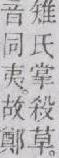 雉氏掌殺草。
音同夷。故鄭